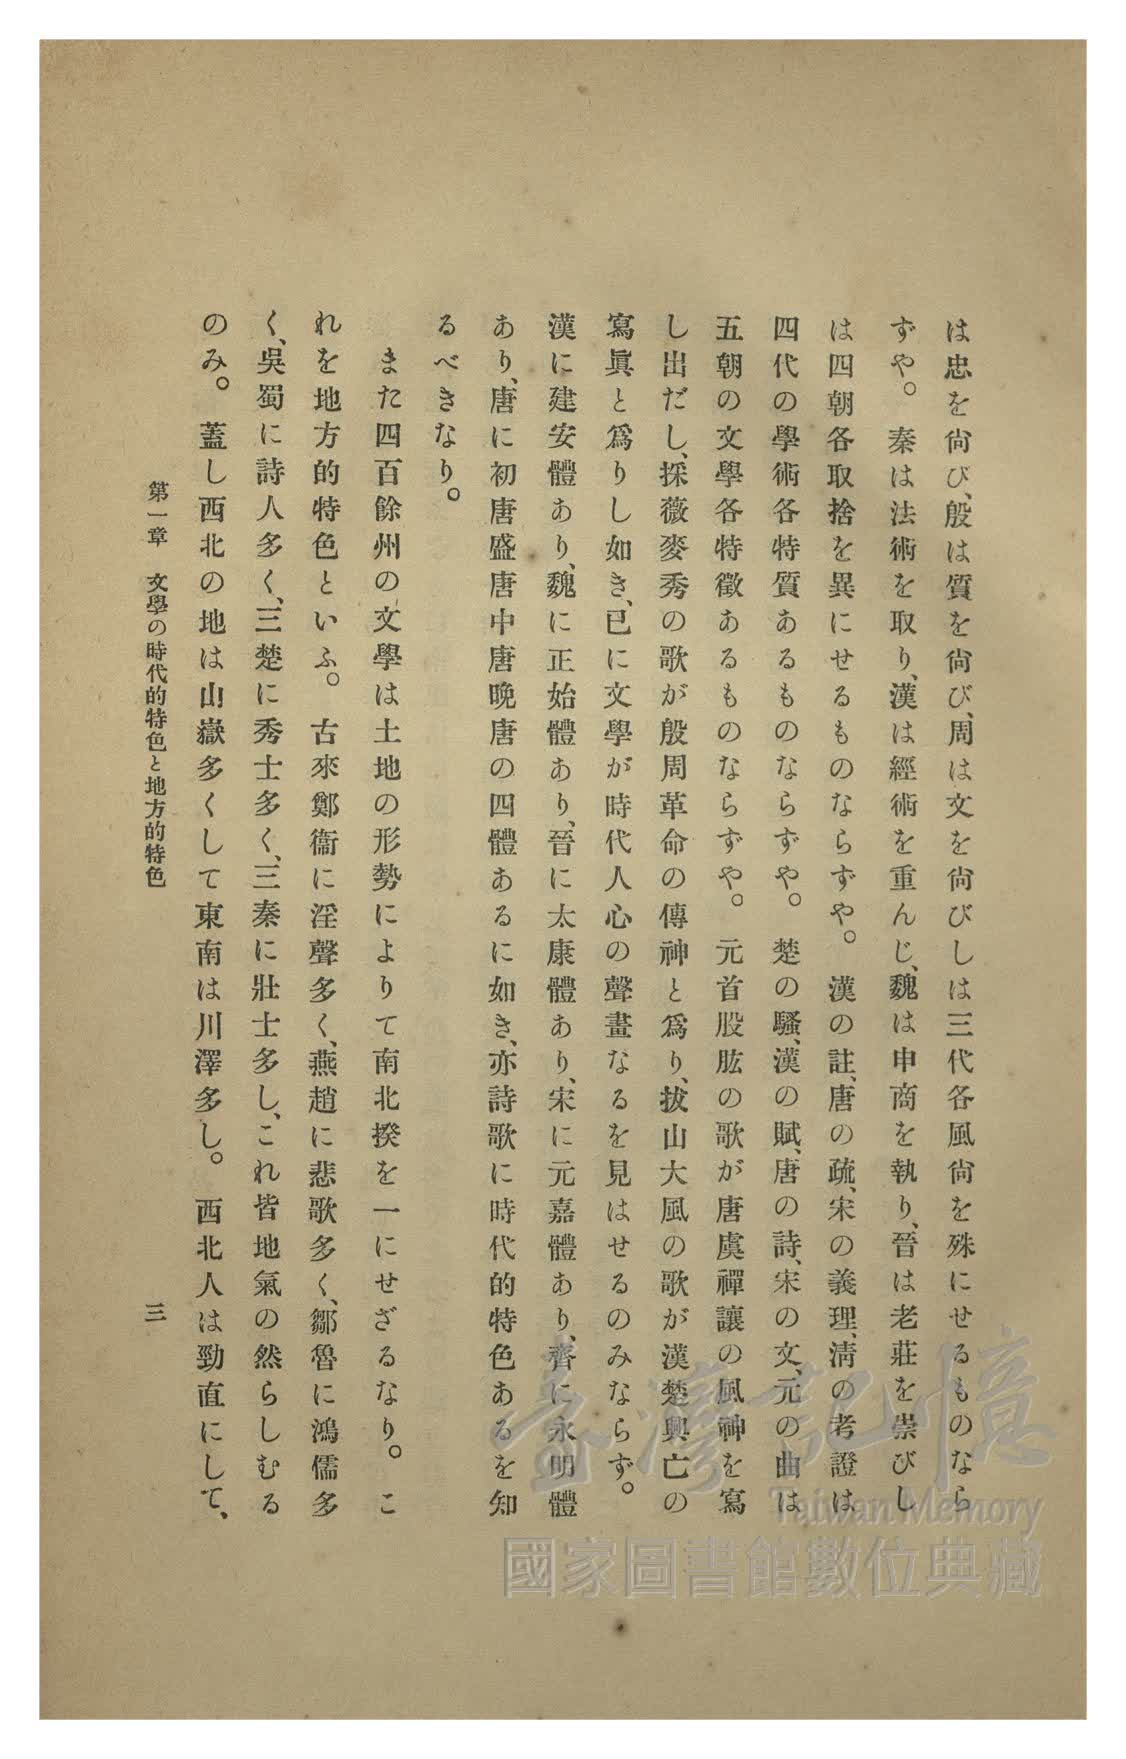 は忠を尙び、殷は質を尙び、周は文を尙びしは三代各風尙を殊にせるものなら
ずや。　秦は法術を取り、漢は經術を重んじ、魏は申商を執り、晉は老莊を崇びし
は四朝各取捨を異にせるものならずや。　漢の註、唐の疏、宋の義理、淸の考證は
四代の學術各特質あるものならずや。　楚の騷、漢の賦、唐の詩、宋の文、元の曲は
五朝の文學各特徵あるものならずや。　元首股肱の歌が唐虞禪讓の風神を寫
し出だし、採薇麥秀の歌が殷周革命の傳神と爲り、拔山大風の歌が漢楚興亡の
寫眞と爲りし如き、已に文學が時代人心の聲畫なるを見はせるのみならず。
漢に建安體あり、魏に正始體あり、晉に太康體あり、宋に元嘉體あり、齊に永明體
あり、唐に初唐盛唐中唐晚唐の四體あるに如き、亦詩歌に時代的特色あるを知
るべきなり。
また四百餘州の文學は土地の形勢によりて南北揆を一にせざるなり。　こ
れを地方的特色といふ。　古來鄭衞に淫聲多く、燕趙に悲歌多く、鄒魯に鴻儒多
く、吳蜀に詩人多く、三楚に秀士多く、三秦に壯士多し、これ皆地氣の然らしむる
のみ。　蓋し西北の地は山嶽多くして東南は川澤多し。　西北人は勁直にして、
第一章　文學の時代的特色と地方的特色
三
臺灣記憶
Taiwan Memory
國家圖書館數位典藏